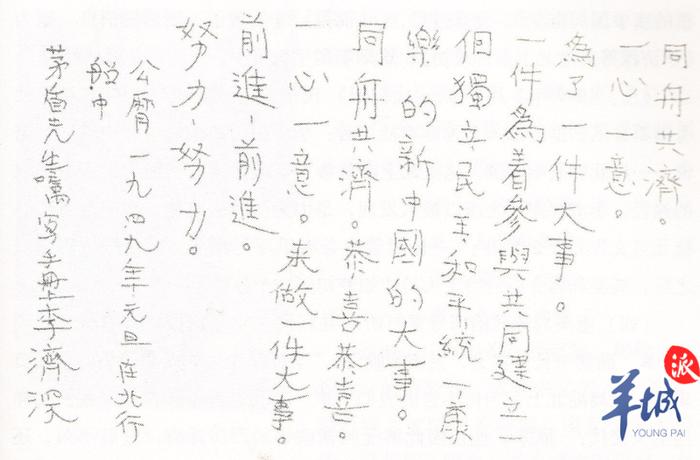 同舟共濟.
心一意。
為了一件大事。
一件為着參與共同建立一
個獨立民主和平統一康
樂的新中國的大事。
同舟共濟。恭喜恭喜。
一心一意。來做一件大事。
前進,前進。
努力,努力。
公曆一九四九年元旦在北行
船中
茅盾先生囑写手冊李濟深
派
羊城
YOUNG PAI